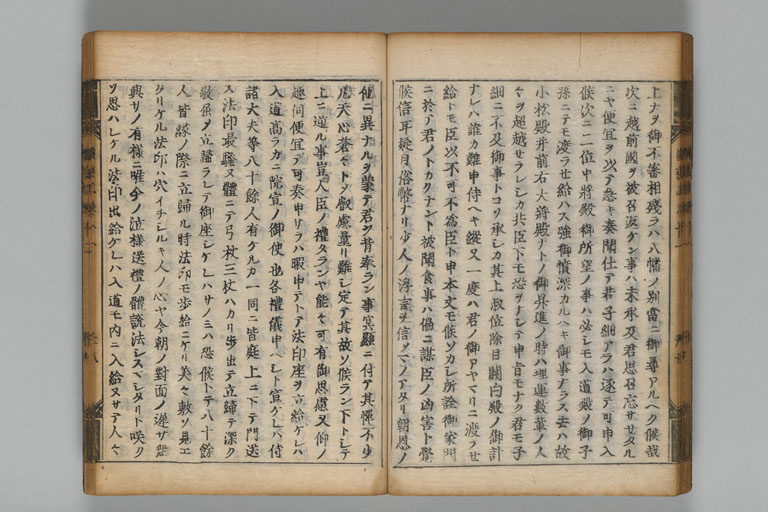 上ナヲ御不審相残ラハ八幡ノ別當ニ御尋アルヘク候哉
次ニ越前國ヲ被召返ケン事ハ未承及君思召忘サセタル
ニヤ便宜ヲ以テ急キ奏聞仕テ若子細アラハ遂テ可申入
候次ニ二位中將殿御所望ノ事ハ必シモ入道殿ノ御子
孫ニテモ渡ラセ給ハス強御憤深カルヘキ御事ナラス其ハ故
小松殿并前右大將殿ナトノ御昇進ノ時ハ理運数輩ノ人
々ヲ超越セラレシカ共臣下モ恐ヲナシテ申旨モナク君モ子
細ニ不及御事トコソ承シカ其上叙位除目關白殿ノ御計
ナレハ誰カ難申侍ヘキ縱又一度ハ君ノ御アヤマリニ渡ラセ
給トモ臣以不可不爲臣ト申本文モ候ソカシ所詮御家門
ニ於テ君ノトカクナント被聞食事ハ偏ニ謀臣ノ凶害ト覺
候信耳疑目俗幣ナリ少人ノ浮言ヲ信メ＼ノアタリ朝恩ノ
他ニ異ナルヲ蒙テ君ヲ背奉ラン事冥顯ニ付テ其憚不少
凡天心蒼々トメ叡慮量リ難シ定テ其故ソ候ラン下トシテ
上ニ逆ル事豈人臣ノ禮タランヤ能々可有御思慮又仰ノ
趣伺便宜テ可奏申サラハ暇申テトテ法印座ヲ立給ケレハ
入道高ラカニ院宣ノ御使也各禮儀申ヘシト宣ケレハ侍
諸大夫等八十餘人有ケルカ一同ニ皆庭上ニ下テ門送
ス法印最騒ヌ體ニテ弓杖三杖ハカリ歩出テ立歸テ深ク
敬屈ヲ立歸ラレテ御座シケレハサノミハ恐候トテ八十餘
人皆縁ノ際ニ立歸ル時法印モ歩給ニケリ美々敷ソ見エ
タリケル法印ハ穴イチシルキ人ノ心ヤ今朝ノ對面ノ遅サ無
興サノ有様ニ唯今ノ送様送禮ノ體説法シスヘシタリト咲ク
ソ思ハレケル法印出給ケレハ入道モ内ニ入給ヌサテ人々